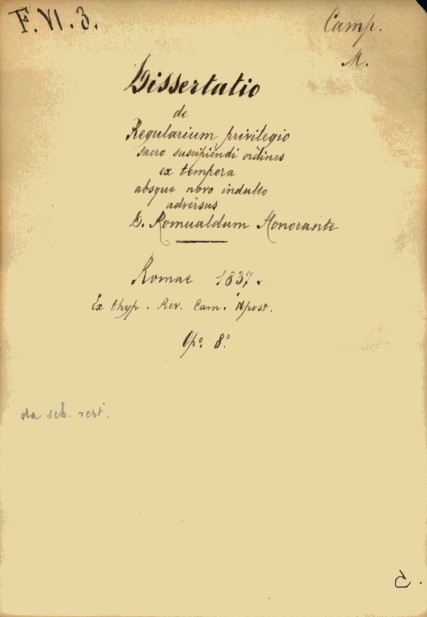 F. VI. 3.
Camp.
M.
Dissertatio
de
Regularium privilegio
sacro suscipiendi ordines
ex tempora
absque novo indulto
adversus
D. Romualdum Honorante
Romae 1837.
Ex thyp. Rev. Cam. Apost.
Op.º 8.º
da seb. rest.